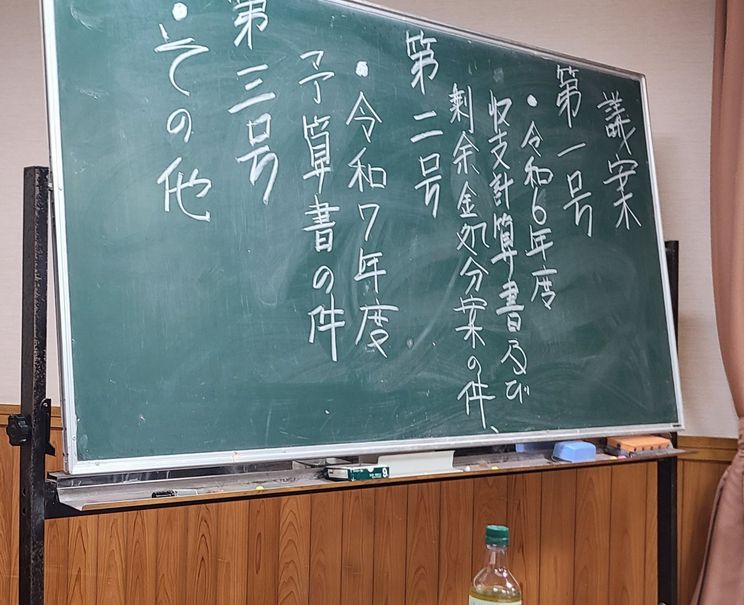 議案
第一号
・令和6年度
収支計算書及び
剰余金処分案の件、
第二号
・令和7年度
予算書の件
第三号
・その他